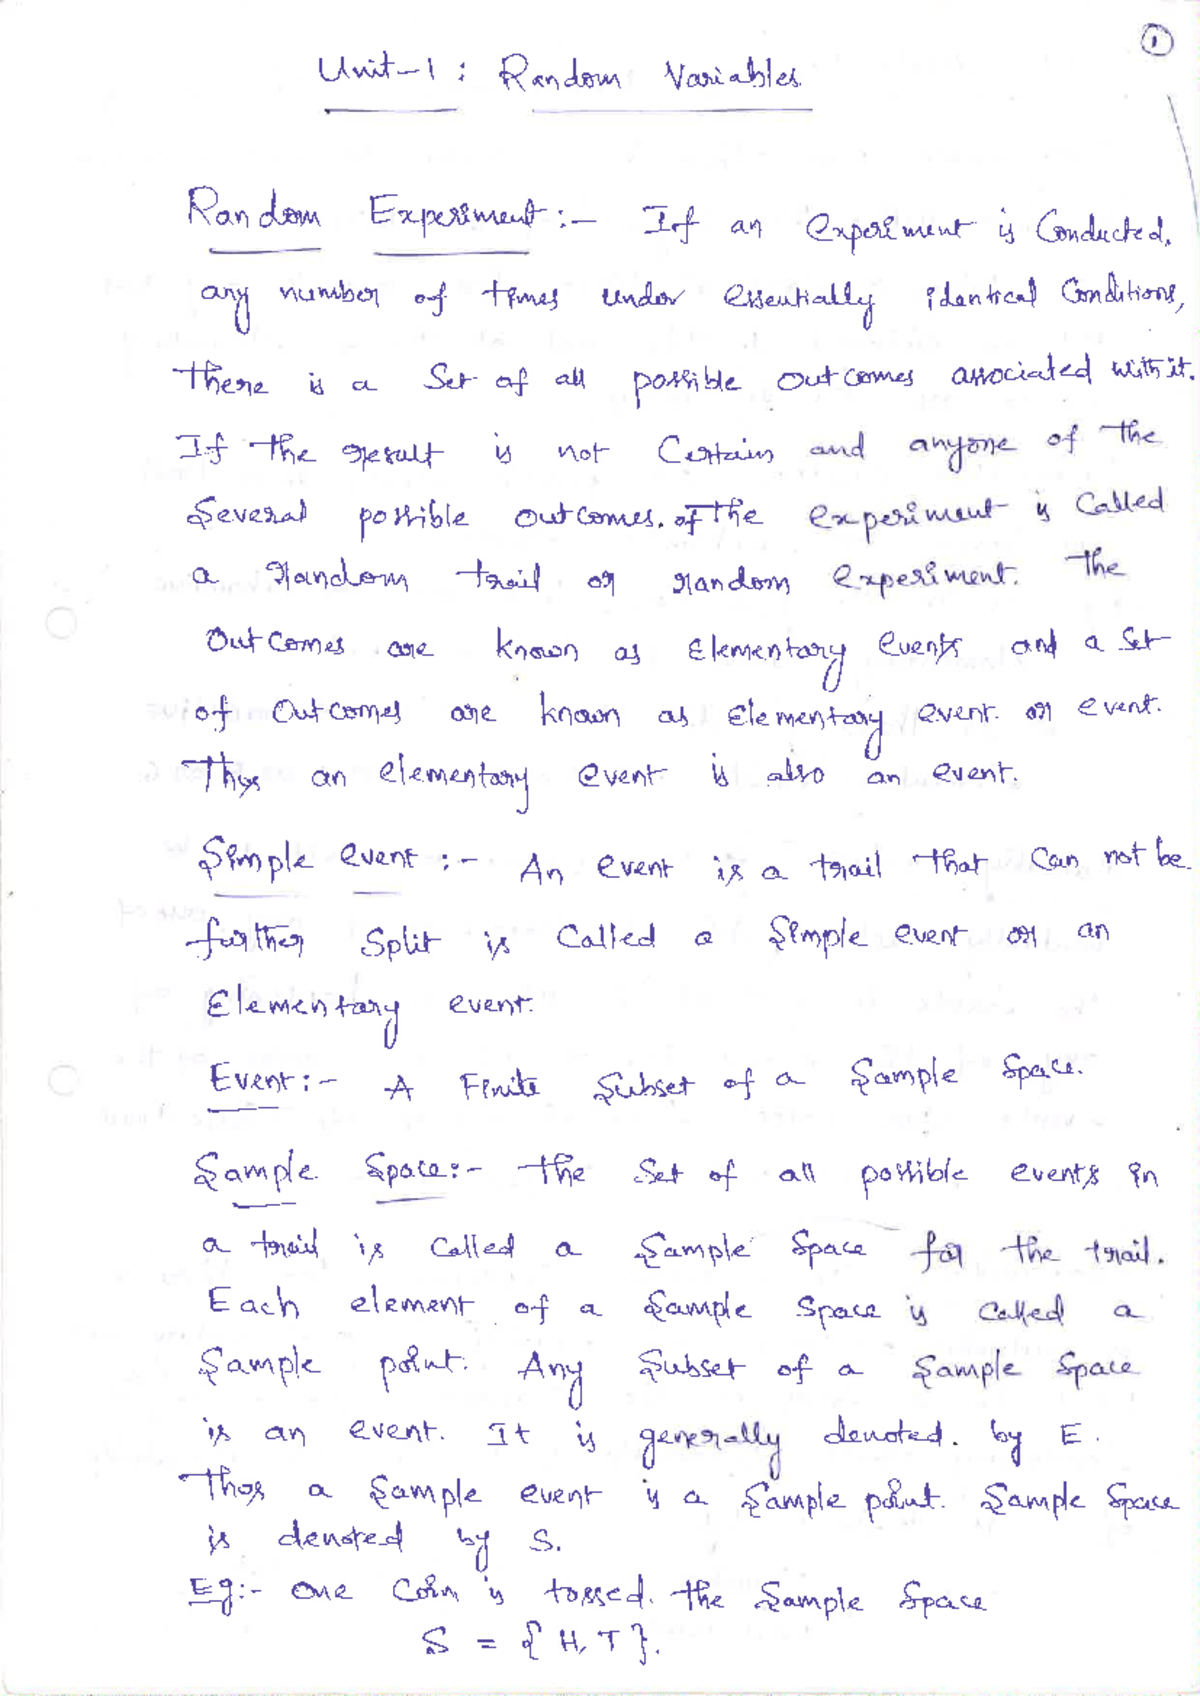 1
Unit-1 : Random Variables
Random Experiment :- If an experiment is Conducted,
any number of times under essentially identical Conditions,
there is a Set of all possible outcomes associated with it.
If the result is not Certain and anyone of the
Several possible outcomes. of The experiment is Called
a random trail or random experiment. The
Outcomes are known as Elementary Events and a Set
of Outcomes are known as Elementary event. or event.
Thus an elementary event is also an event.
Simple event :- An event is a trail that Can not be
further Split is Called a Simple event or an
Elementary event.
Event :- A Finite Subset of a Sample Space.
Sample Space :- The Set of all possible events in
a trail is Called a Sample Space for the trail.
Each element of a Sample Space is Called a
Sample point. Any Subset of a Sample Space
is an event. It is generally denoted. by E.
Thus a Sample event is a Sample point. Sample Space
is denoted by S.
Eg:- One Coin is tossed. The Sample Space
S = {H, T}.